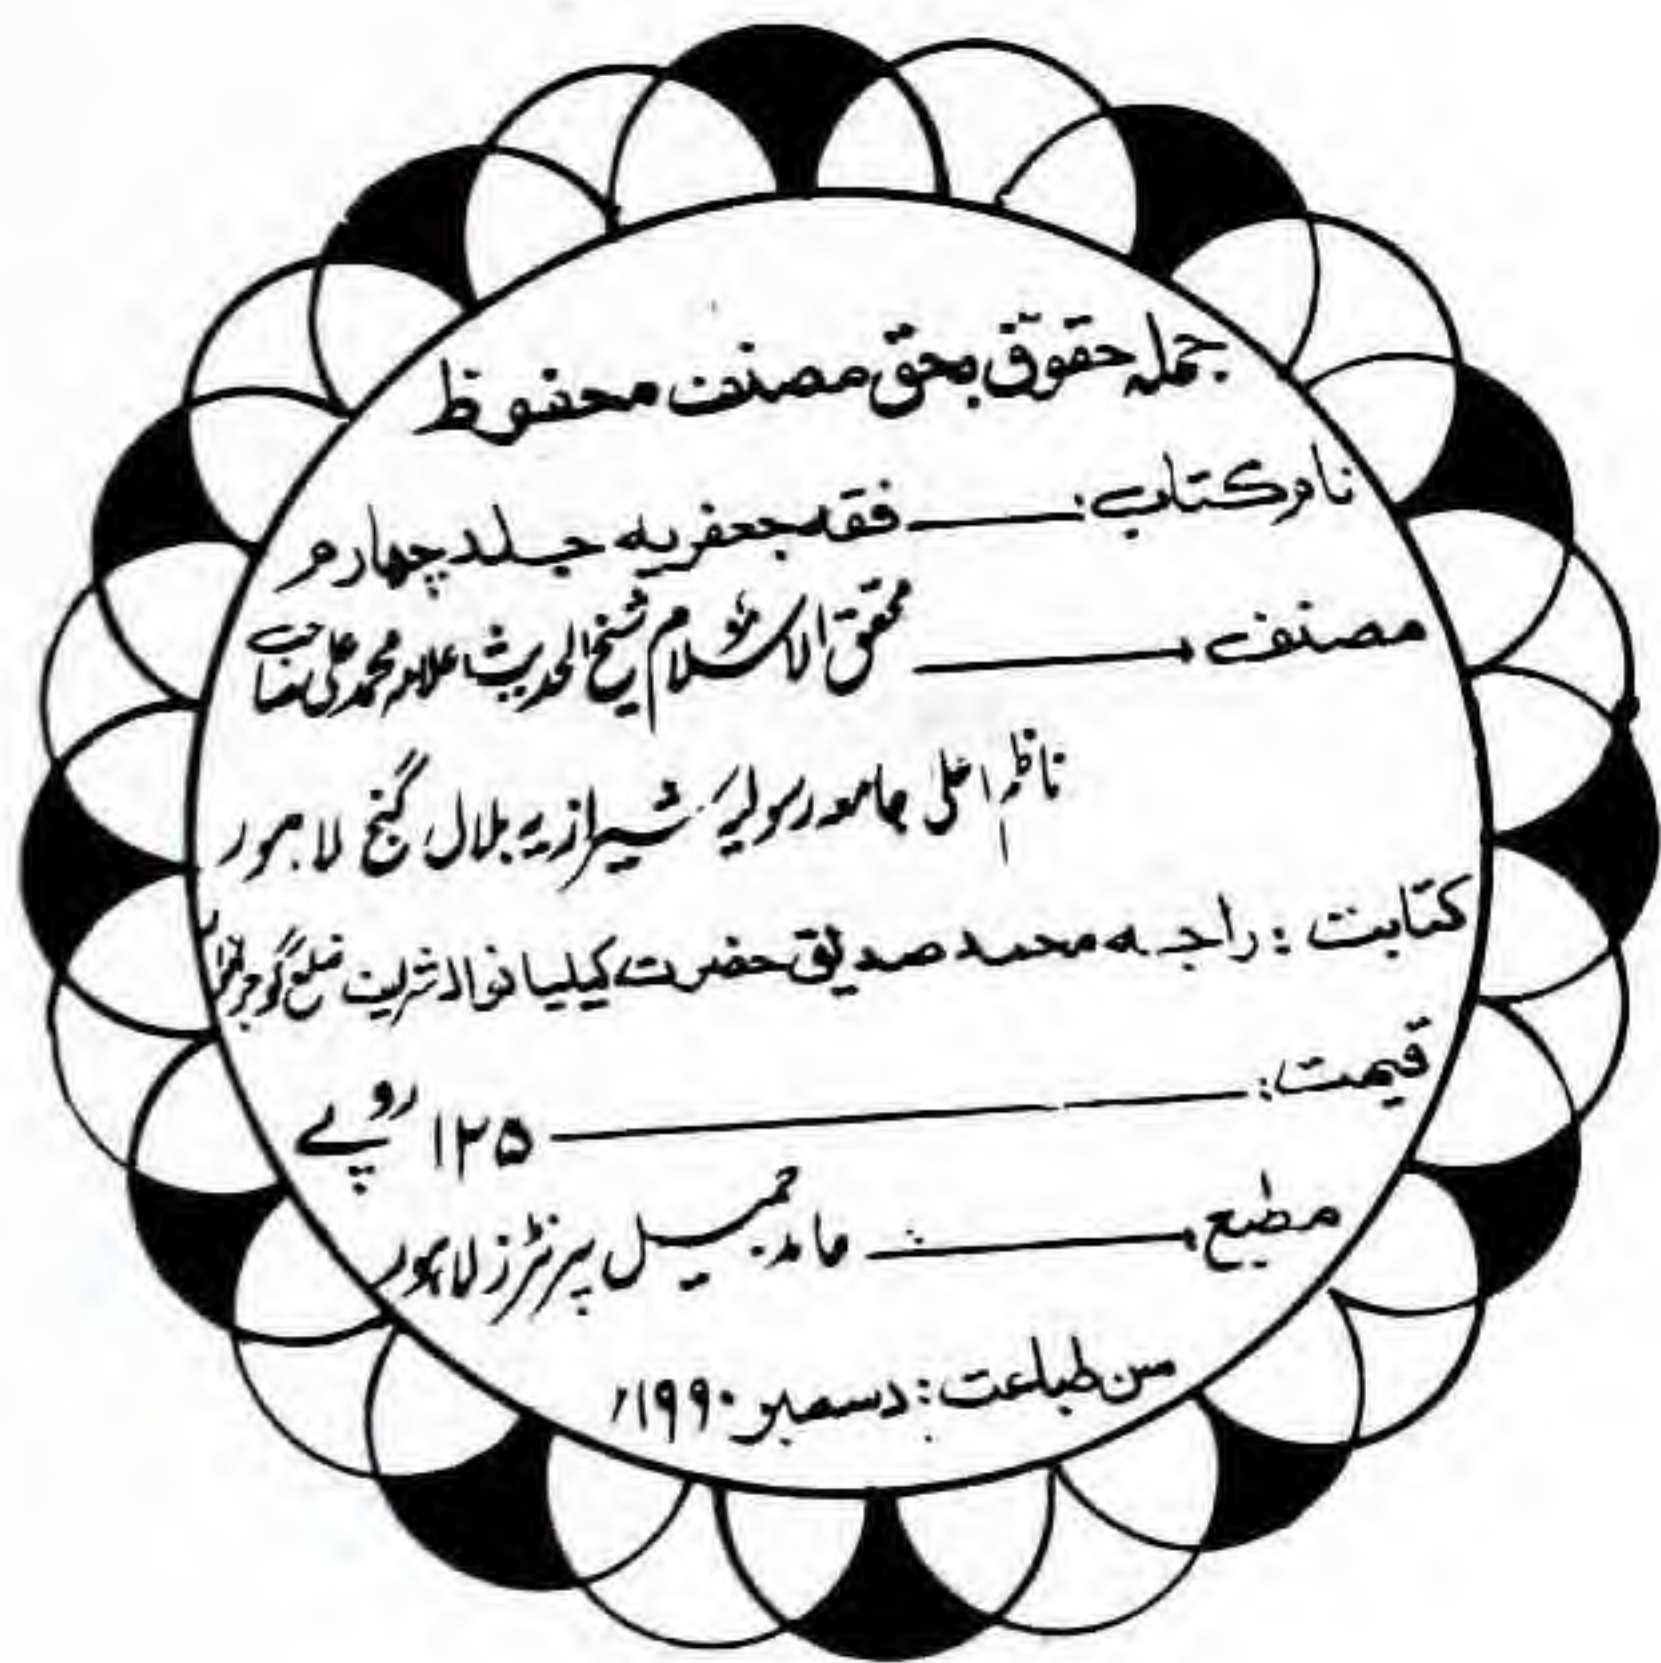 جملہ حقوق بحق مصنف محفوظ
نام کتاب: فقہ جعفریہ جلد چہارم
مصنف محقق الاسلام شیخ الحدیث علامہ محمد علی صاحب
ناظم اعلیٰ جامعہ رسولیہ شیرازیہ بلال گنج لاہور
کتابت: راجہ محمد صدیق حضرت کیلیانوالہ شریف ضلع گوجرانوالہ
قیمت: ۱۲۵ روپے
مطبع حامد جمیل پرنٹرز لاہور
سن طباعت: دسمبر ۱۹۹۰ء